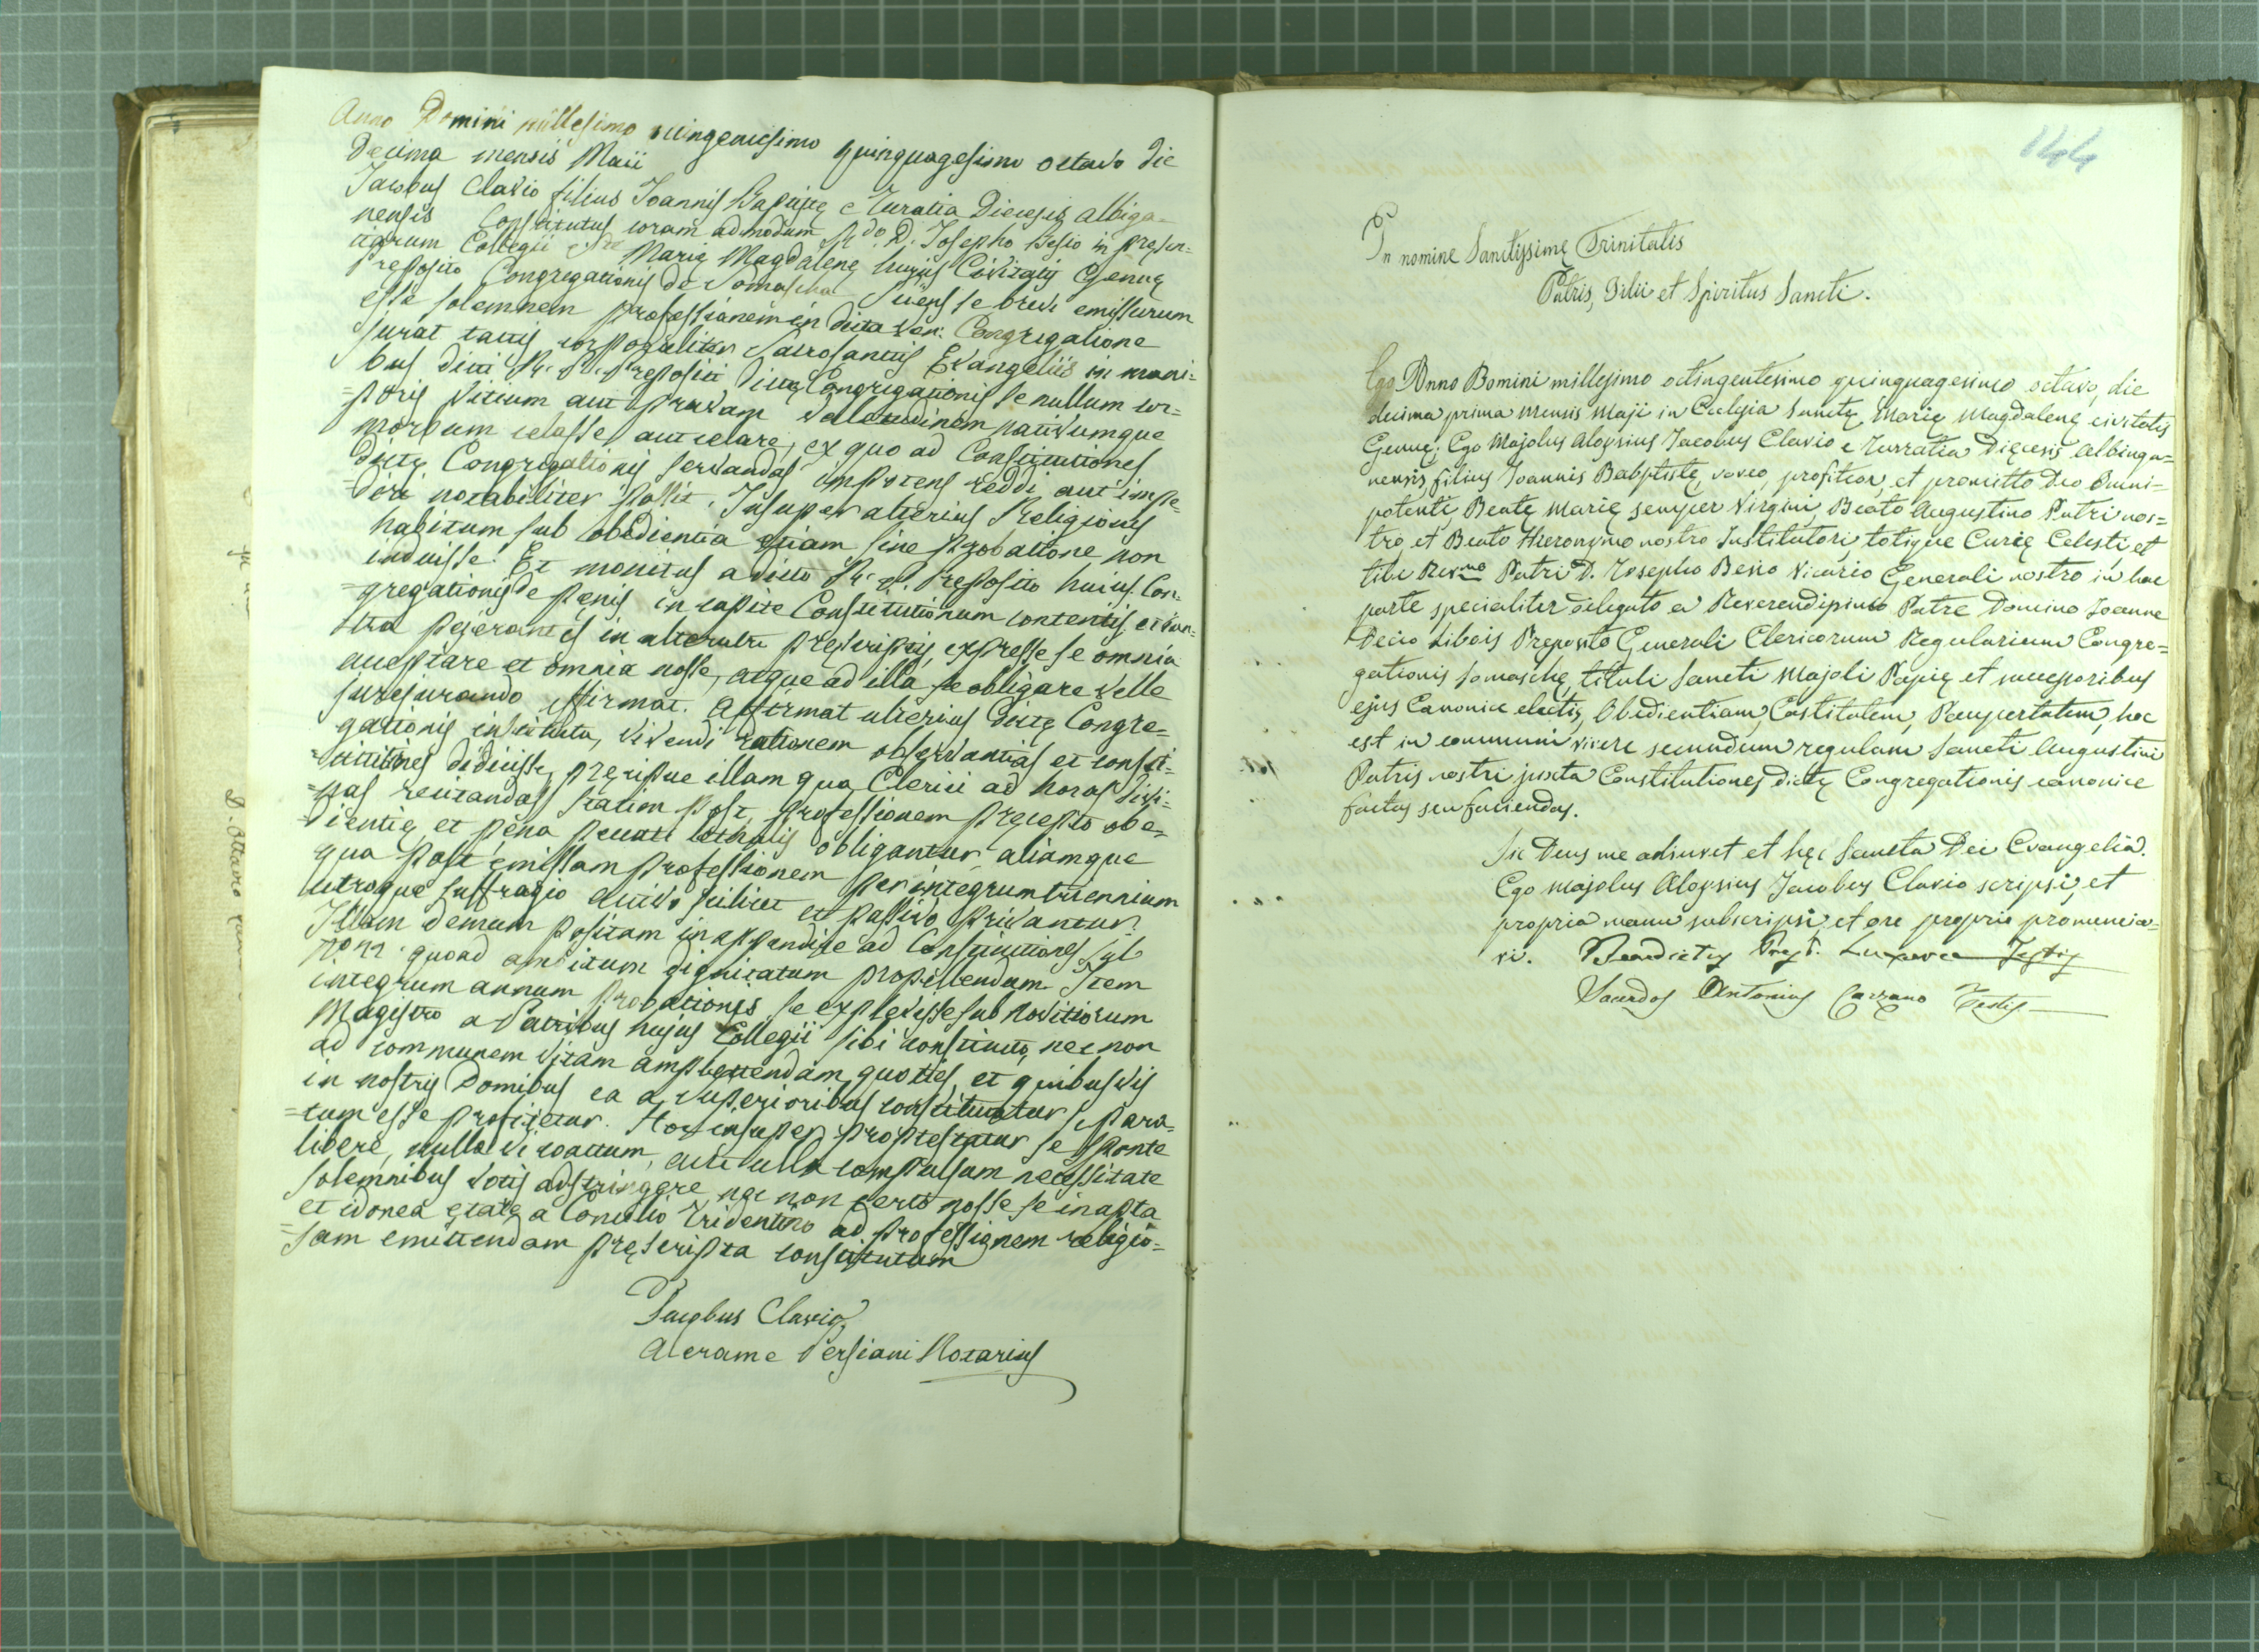 Anno Domini millesimo octingentesimo quinquagesimo octavo die
Decima mensis Maii
Jacobus Clavio filius Joannis Baptistę e Zuratia Diecesis Albiga-
nensis Constitutus coram admodum R.do D. Josepho Besio in presen-
tiarum Collegii Marię Magdalenę hujus Civitatis Genuę
Preposito Congregationis de Somascha Sciens se brevi emissurum
esse solemnem professionem in dicta Ven: Congregatione
jurat tactis corporaliter Sacrosanctis Evangeliis in mani-
bus dicti R. P. Prepositi dictę Congregationis se nullum cor-
=poris vitium aut pravam valetudinem nativumque
morbum celasse aut celare, ex quo ad Constitutiones
dictę Congregationis servandas impotens reddi aut impe-
=diri notabiliter possit. Insuper alterius Religionis
habitum sub obedientia etiam sine probatione non
induisse. Et monitus a dicto R. P. Preposito huius Con-
=gregationis de pęnis in capite Constitutionum contentis et con-
tra pejerantes in alterutri pręscriptis, expresse se omnia
acceptare et omnia nosse, atque ad illa se obligare velle
jurejurando affirmat. Affirmat ulterius dictę Congre-
gationis instituta, vivendi rationem observantias et consti-
=tutiones didicisse, pręcipue illam qua Clerici ad horas divi-
=nas recitandas statim post professionem pręcepto obe-
=dientię et pęna peccati lethalis obligantur aliamque
qua post emissam professionem per integrum triennium
utroque suffragio activo scilicet et passivo privantur.
Illam demum positam in appendice ad Constitutiones sub
quoad ambitum dignitatum propellendum. Item
integrum annum probationis se explevisse sub Novitiorum
Magistro a Patribus hujus Collegii sibi constituto, nec non
ad communem vitam amplectendam quoties, et quibusvis
in nostris Domibus ea a Superioribus constituatur se para-
=tum esse profitetur. Hoc insuper protestatur se sponte
libere, nulla vi coactum, aut ulla compulsum necessitate
solemnibus votis adstringere nec non certo nosse se in apta
et idonea ętate a Concilio Tridentino ad professionem religio-
=sam emittendam pręscripta constitutum
Jacobus Clavio
Alerame Persiani Notarius
144
In nomine Sanctissimę Trinitatis
Patris, Filii et Spiritus Sancti.
Ego Anno Domini millesimo octingentesimo quinquagesimo octavo, die
decima prima mensis Maji in Ecclesia Sanctę Marię Magdalenę civitatis
Genuę; Ego Majolus Aloysius Jacobus Clavio e Zurratia Dięcesis Albinga-
nensis filius Joannis Babptistę, voveo, profiteor, et promitto Deo Omni-
potenti Beatę Marię semper Virgini, Beato Augustino Patri nos-
tro et Beato Hieronymo nostro Institutori, totique Curię Celesti, et
tibi Rev.mo Patri D. Josepho Besio Vicario Generali nostro in hac
parte specialiter delegato a Reverendissimo Patre Domino Joanne
Decio Libois Preposito Generali Clericorum Regularium Congre-
gationis Somaschę, tituli Sancti Majoli Papię et successoribus
ejus Canonice electis, Obedientiam, Castitatem, Paupertatem, hoc
est in communi vivere secundum regulam Sancti Augustini
Patris nostri juxta Constitutiones dictę Congregationis canonice
factas seu faciendas.
Sic Deus me adiuvet et hęc Sancta Dei Evangelia.
Ego Majolus Aloysius Jacobus Clavio scripsi, et
propria manu subscripsi, et ore proprio pronuncia-
vi. Benedictus Testis
Sacerdos Antonius Carzano Testis